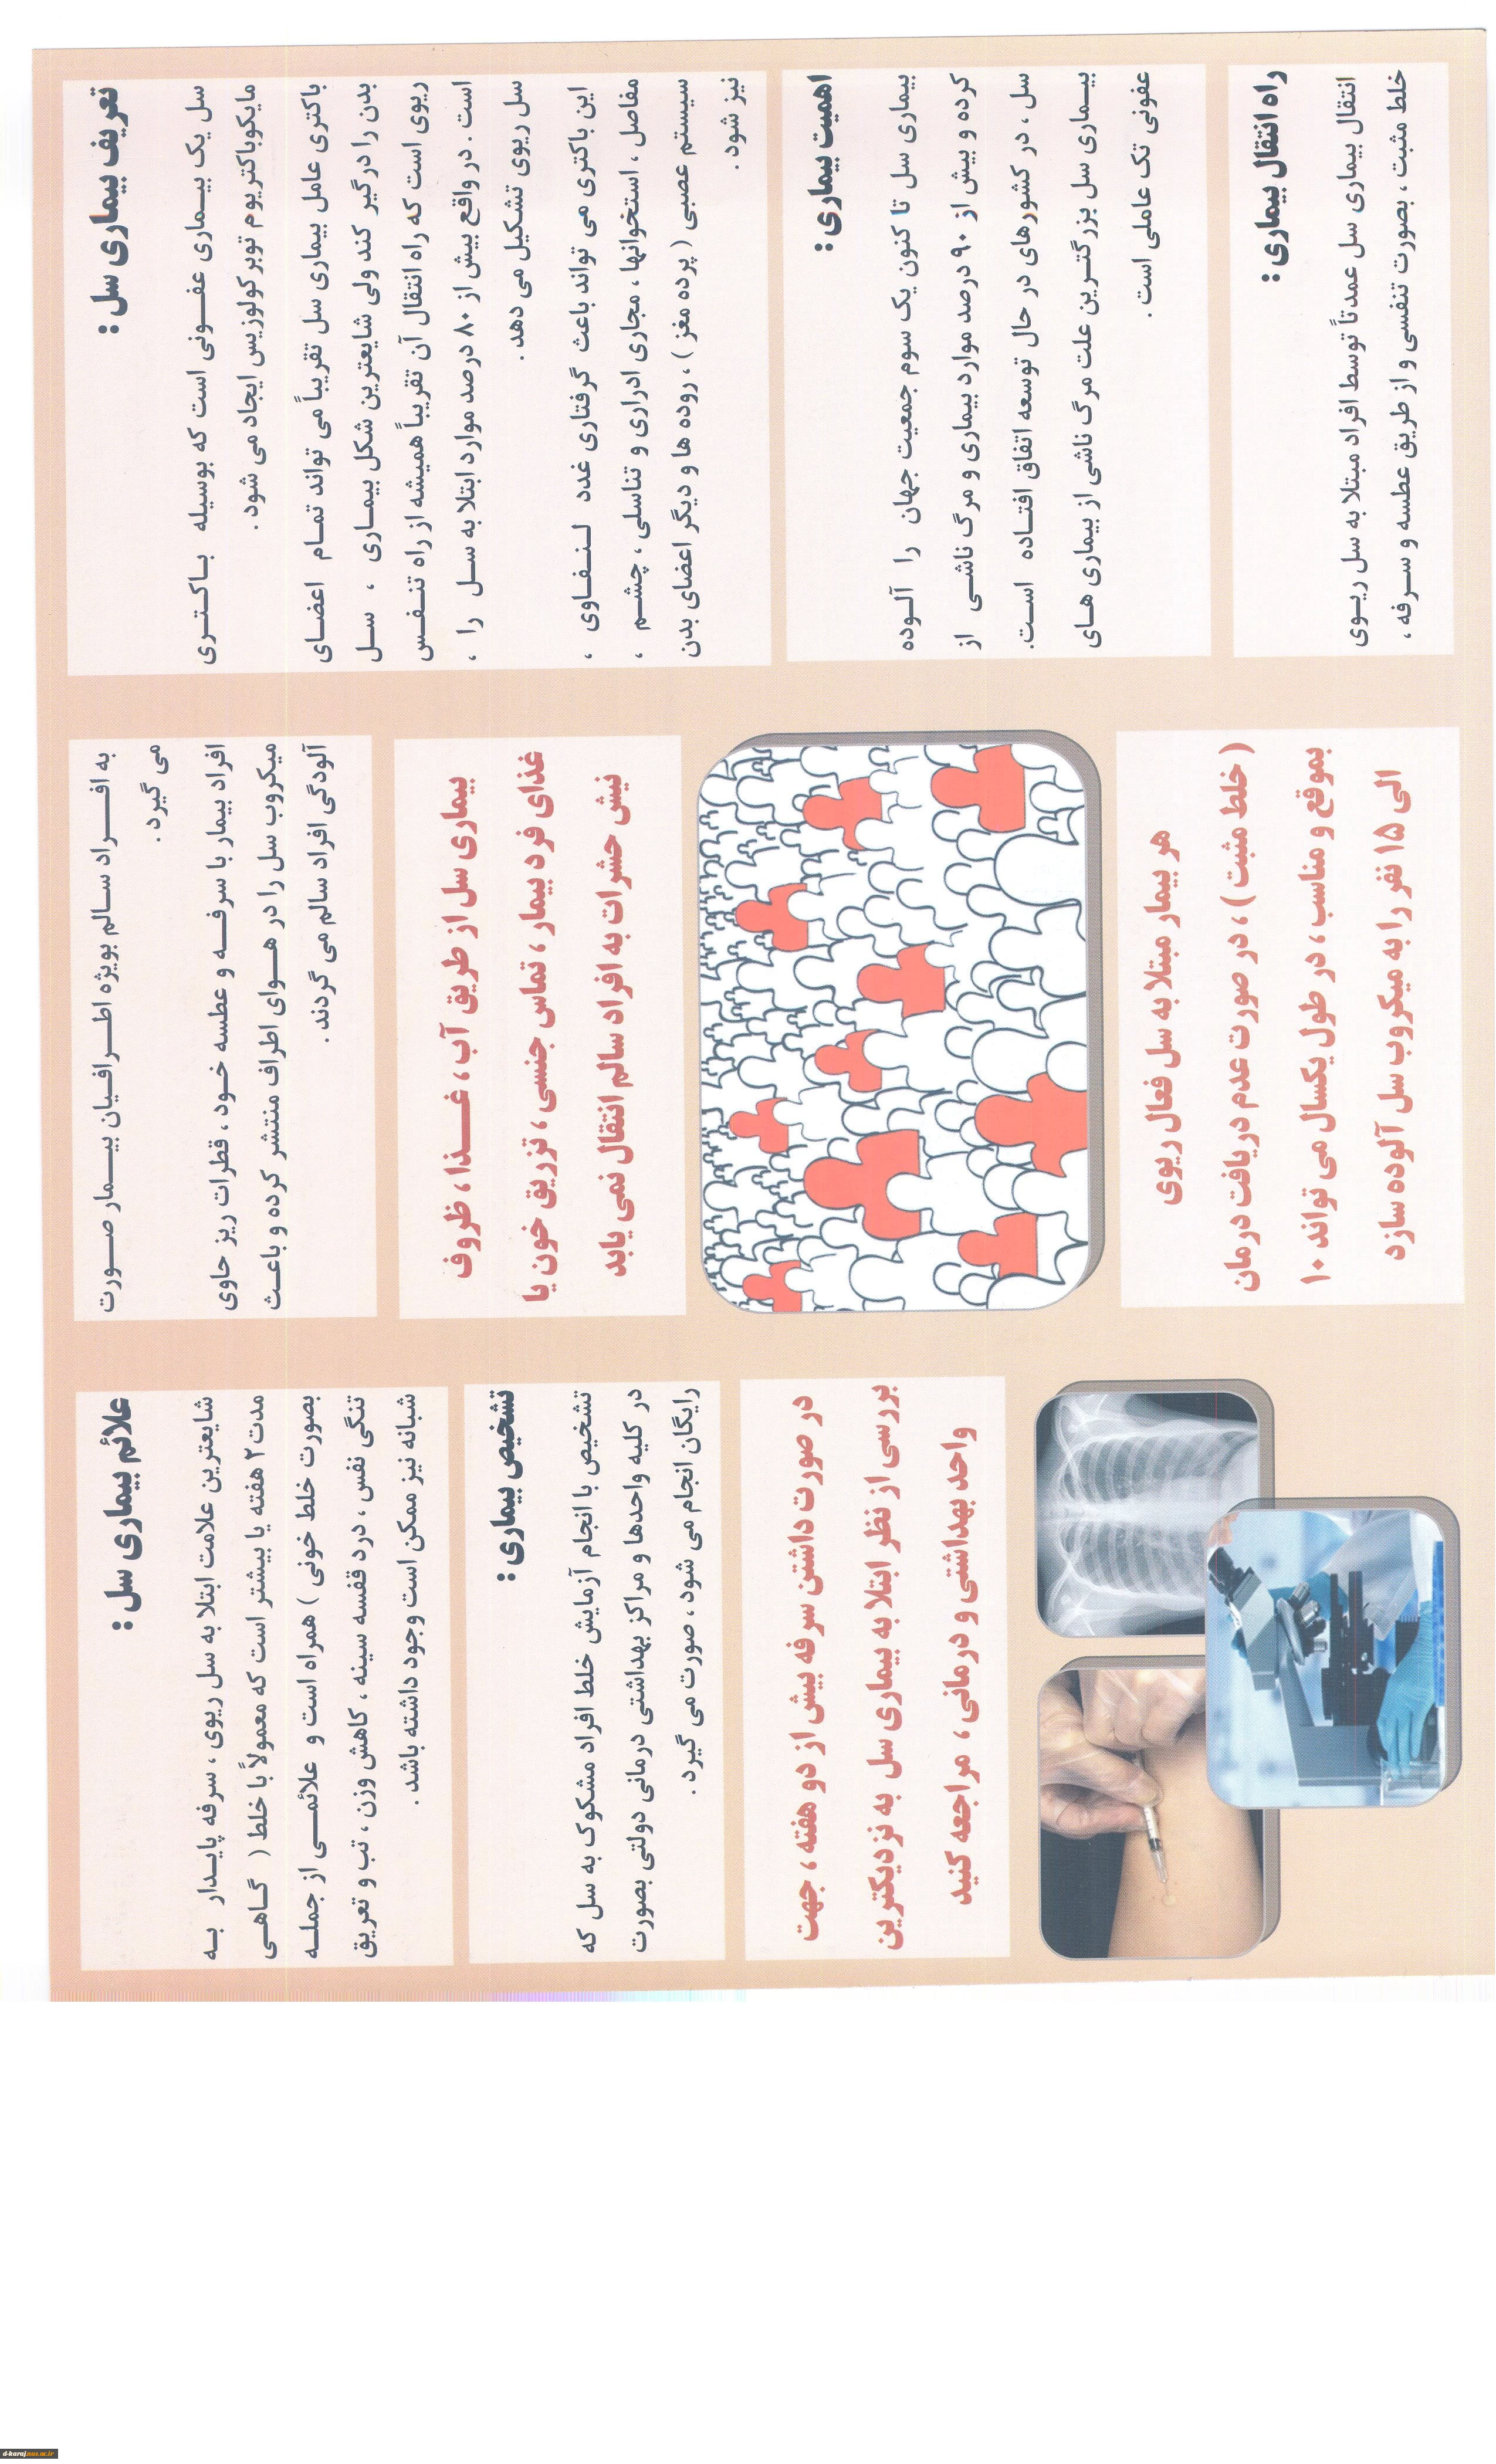 تعریف بیماری سل :
سل یک بیماری عفونی است که بوسیله باکتری
مایکوباکتریوم توبرکولوزیس ایجاد می شود .
باکتری عامل بیماری سل تقریباً می تواند تمام اعضای
بدن را درگیر کند ولی شایعترین شکل بیماری ، سل
ریوی است که راه انتقال آن تقریباً همیشه از راه تنفس
است . در واقع بیش از ۸۰ درصد موارد ابتلا به سل را ،
سل ریوی تشکیل می دهد .
این باکتری می تواند باعث گرفتاری غدد لنفاوی ،
مفاصل ، استخوانها ، مجاری ادراری و تناسلی ، چشم ،
سیستم عصبی ( پرده مغز ) ، روده ها و دیگر اعضای بدن
نیز شود .
اهمیت بیماری :
بیماری سل تا کنون یک سوم جمعیت جهان را آلوده
کرده و بیش از ۹۰ درصد موارد بیماری و مرگ ناشی از
سل ، در کشورهای در حال توسعه اتفاق افتاده است.
بیماری سل بزرگترین علت مرگ ناشی از بیماری های
عفونی تک عاملی است .
راه انتقال بیماری :
انتقال بیماری سل عمدتاً توسط افراد مبتلا به سل ریوی
خلط مثبت ، بصورت تنفسی و از طریق عطسه و سرفه ،
به افراد سالم بویژه اطرافیان بیمار صورت
می گیرد .
افراد بیمار با سرفه و عطسه خود ، قطرات ریز حاوی
میکروب سل را در هوای اطراف منتشر کرده و باعث
آلودگی افراد سالم می گردند .
بیماری سل از طریق آب ، غذا ، ظروف
غذای فرد بیمار ، تماس جنسی ، تزریق خون یا
نیش حشرات به افراد سالم انتقال نمی یابد
هر بیمار مبتلا به سل فعال ریوی
( خلط مثبت ) ، در صورت عدم دریافت درمان
بموقع و مناسب ، در طول یکسال می تواند ۱۰
الی ۱۵ نفر را به میکروب سل آلوده سازد
علائم بیماری سل :
شایعترین علامت ابتلا به سل ریوی ، سرفه پایدار به
مدت ۲ هفته یا بیشتر است که معمولاً با خلط ( گاهی
بصورت خلط خونی ) همراه است و علائمی از جمله
تنگی نفس ، درد قفسه سینه ، کاهش وزن ، تب و تعریق
شبانه نیز ممکن است وجود داشته باشد .
تشخیص بیماری :
تشخیص با انجام آزمایش خلط افراد مشکوک به سل که
در کلیه واحدها و مراکز بهداشتی درمانی دولتی بصورت
رایگان انجام می شود ، صورت می گیرد .
در صورت داشتن سرفه بیش از دو هفته ، جهت
بررسی از نظر ابتلا به بیماری سل به نزدیکترین
واحد بهداشتی و درمانی ، مراجعه کنید